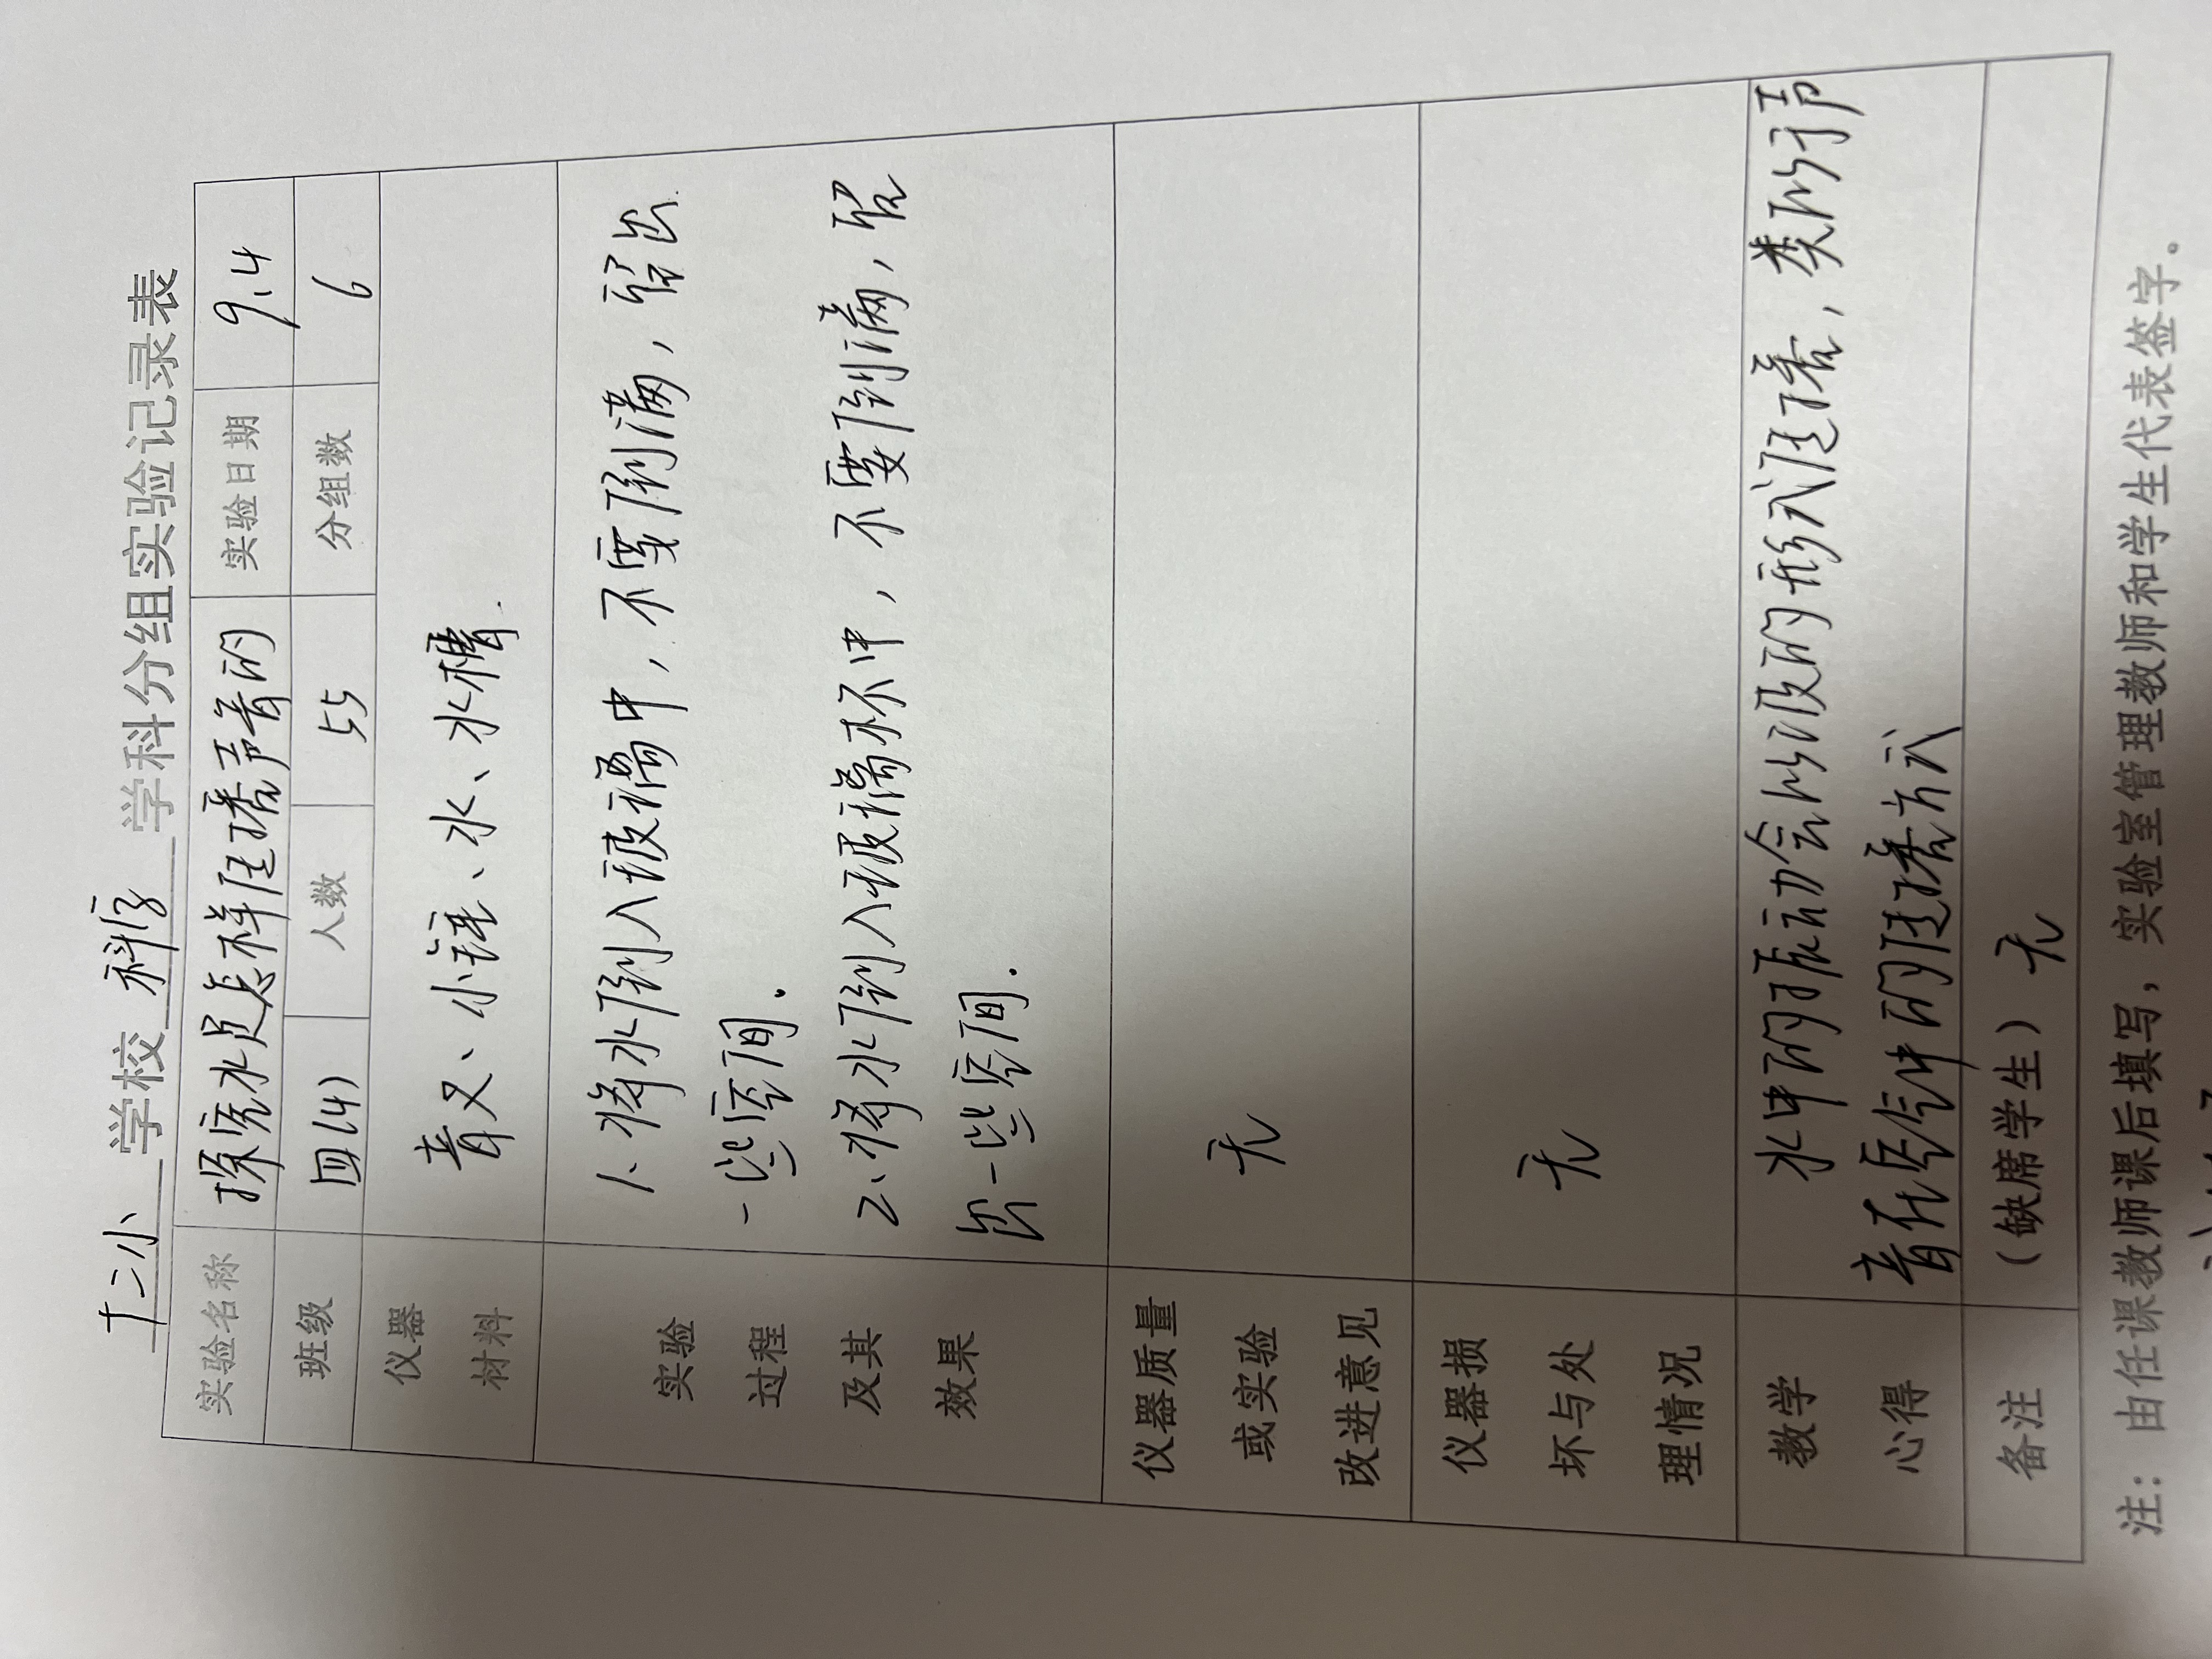 十二小 学校 科学 学科分组实验记录表
实验名称 探究水是怎样传播声音的 实验日期 9.4
班级 四(4) 人数 55 分组数 6
仪器材料 音叉、小锤、水、水槽.
实验过程及其效果
1、将水倒入玻璃中,不要倒满,留出
一些空间.
2、将水倒入玻璃杯中,不要倒满,留
出一些空间.
仪器质量或实验改进意见 无
仪器损坏与处理情况 无
教学心得
水中的振动会以波的形式传播,类似于声
音在空气中的传播方式
备注 (缺席学生) 无
注:由任课教师课后填写,实验室管理教师和学生代表签字。